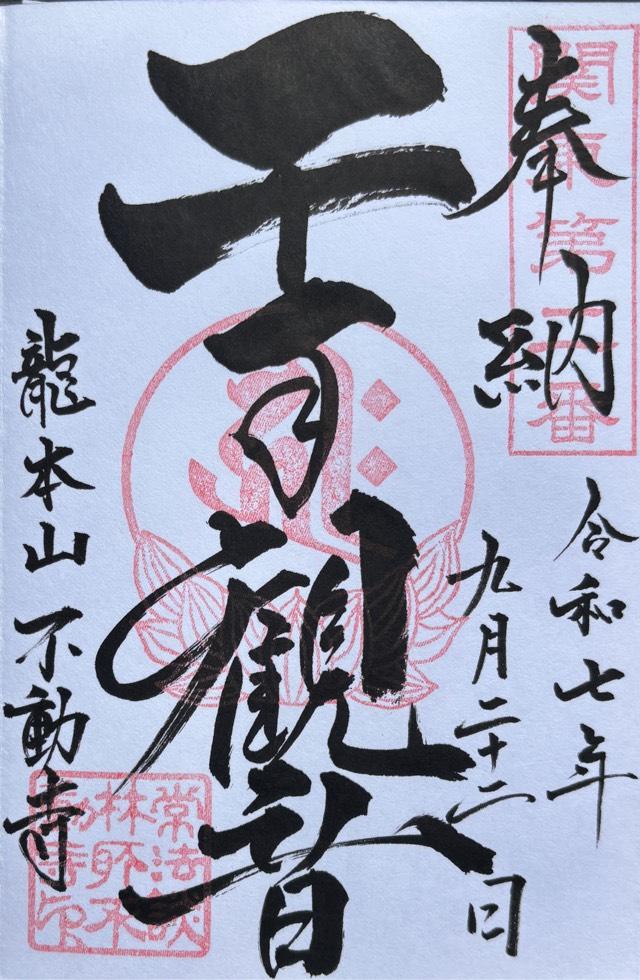 関東第二番
奉納
令和七年
九月二十二日
千手觀音
龍本山 不動寺
常法談
林所不
動寺印